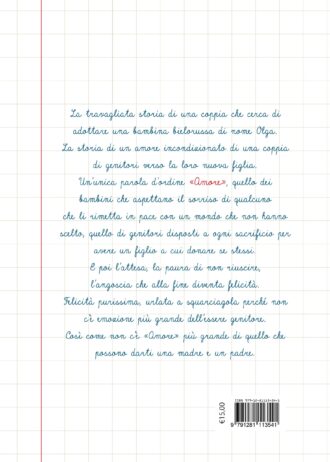 La travagliata storia di una coppia che cerca di
adottare una bambina bielorussa di nome Olga.
La storia di un amore incondizionato di una coppia
di genitori verso la loro nuova figlia.
Un'unica parola d'ordine «Amore», quello dei
bambini che aspettano il sorriso di qualcuno
che li rimetta in pace con un mondo che non hanno
scelto, quello di genitori disposti a ogni sacrificio per
avere un figlio a cui donare se stessi.
E poi l'attesa, la paura di non riuscire,
l'angoscia che alla fine diventa felicità.
Felicità purissima, urlata a squarciagola perché non
c'è emozione più grande dell'essere genitore.
Così come non c'è «Amore» più grande di quello che
possono darti una madre e un padre.
€15,00
9 791281 113541